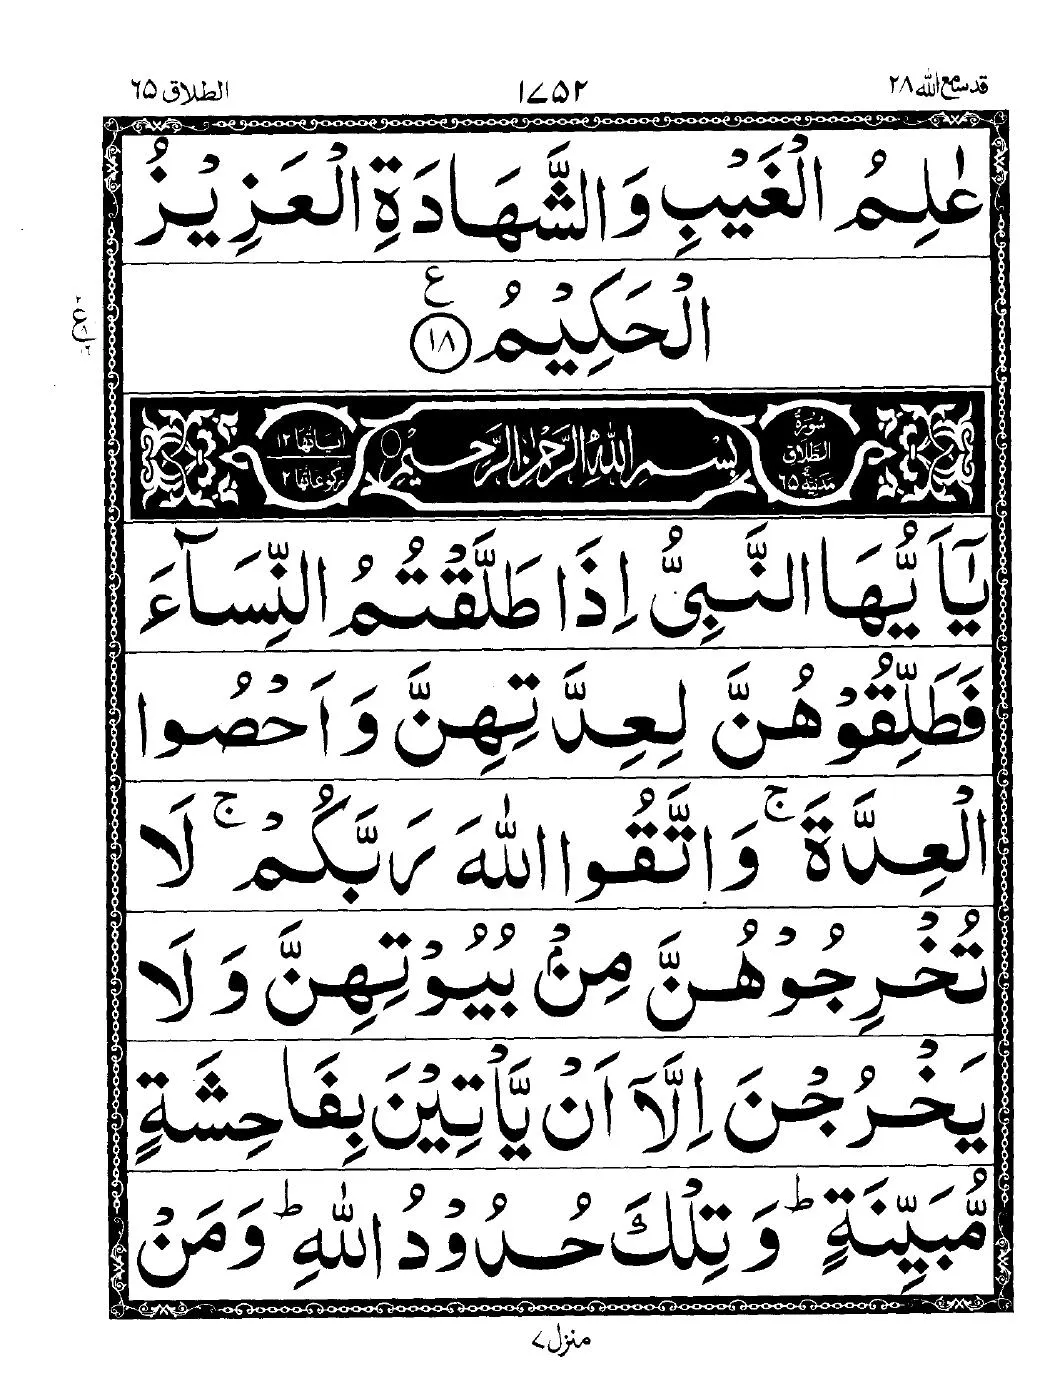 قد سمع الله ٢٨
١٧٥٢
الطلاق ٦٥
عٰلِمُ الْغَيْبِ وَالشَّهَادَةِ الْعَزِيْزُ
الْحَكِيْمُ ١٨ ع
سُوْرَةُ الطَّلَاقِ مَدَنِيَّةٌ ٦٥
بِسْمِ اللهِ الرَّحْمٰنِ الرَّحِيْمِ
اٰيَاتُهَا ١٢
رُكُوْعَاتُهَا ٢
يٰٓاَيُّهَا النَّبِىُّ اِذَا طَلَّقْتُمُ النِّسَآءَ
فَطَلِّقُوْهُنَّ لِعِدَّتِهِنَّ وَاَحْصُوا
الْعِدَّةَ ۚ وَاتَّقُوا اللّٰهَ رَبَّكُمْ ۚ لَا
تُخْرِجُوْهُنَّ مِنْۢ بُيُوْتِهِنَّ وَلَا
يَخْرُجْنَ اِلَّآ اَنْ يَّاْتِيْنَ بِفَاحِشَةٍ
مُّبَيِّنَةٍ ؕ وَتِلْكَ حُدُوْدُ اللّٰهِ ؕ وَمَنْ
منزل ٧